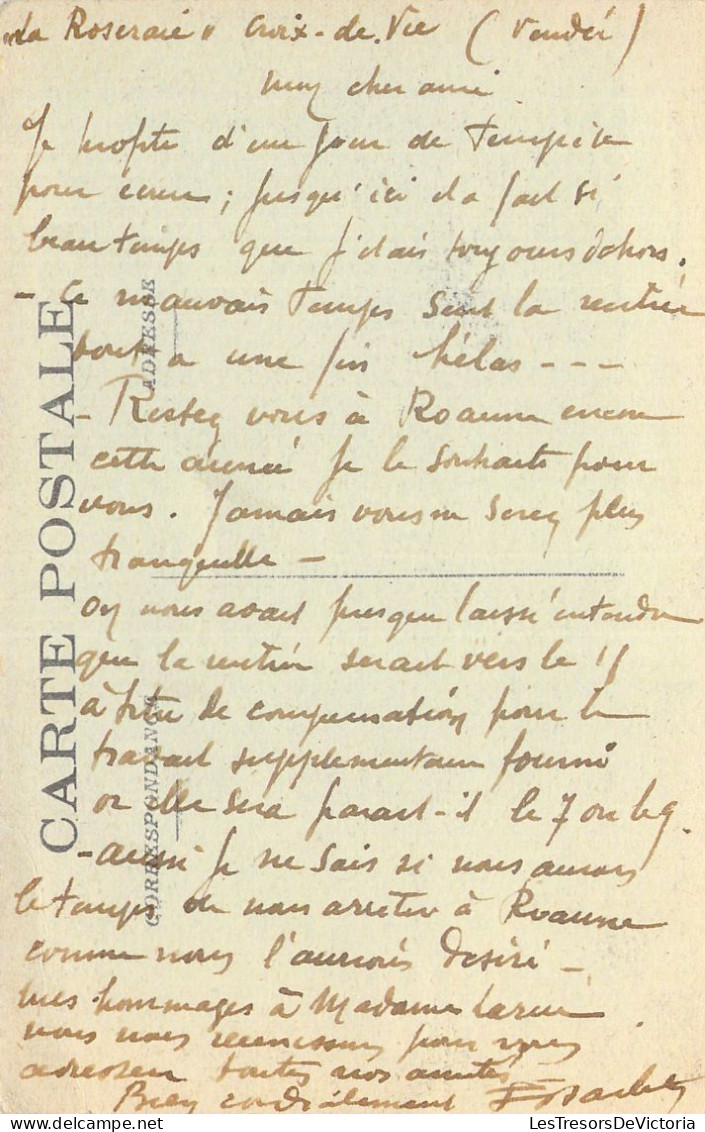 "La Roseraie" Croix-de-Vie (Vendée)
mon cher ami
Je profite d'un jour de tempête
pour écrire; jusqu'ici il a fait si
beau temps que j'étais toujours dehors.
- Ce mauvais temps sent la rentrée
tout a une fin hélas ---
- Restez vous à Roanne encore
cette année je le souhaite pour
vous. Jamais vous ne serez plus
tranquille -
on nous avait presque laissé entendre
que la rentrée serait vers le 11
à titre de compensation pour le
travail supplémentaire fourni
or elle sera parait-il le 7 ou le 9.
- aussi je ne sais si nous aurons
le temps de nous arrêter à Roanne
comme nous l'aurions désiré -
mes hommages à Madame
nous nous réunissons pour vous
adresser toutes nos amitiés
Bien cordialement
CARTE POSTALE
ADRESSE
CORRESPONDANCE
LesTresorsDeVictoria.com